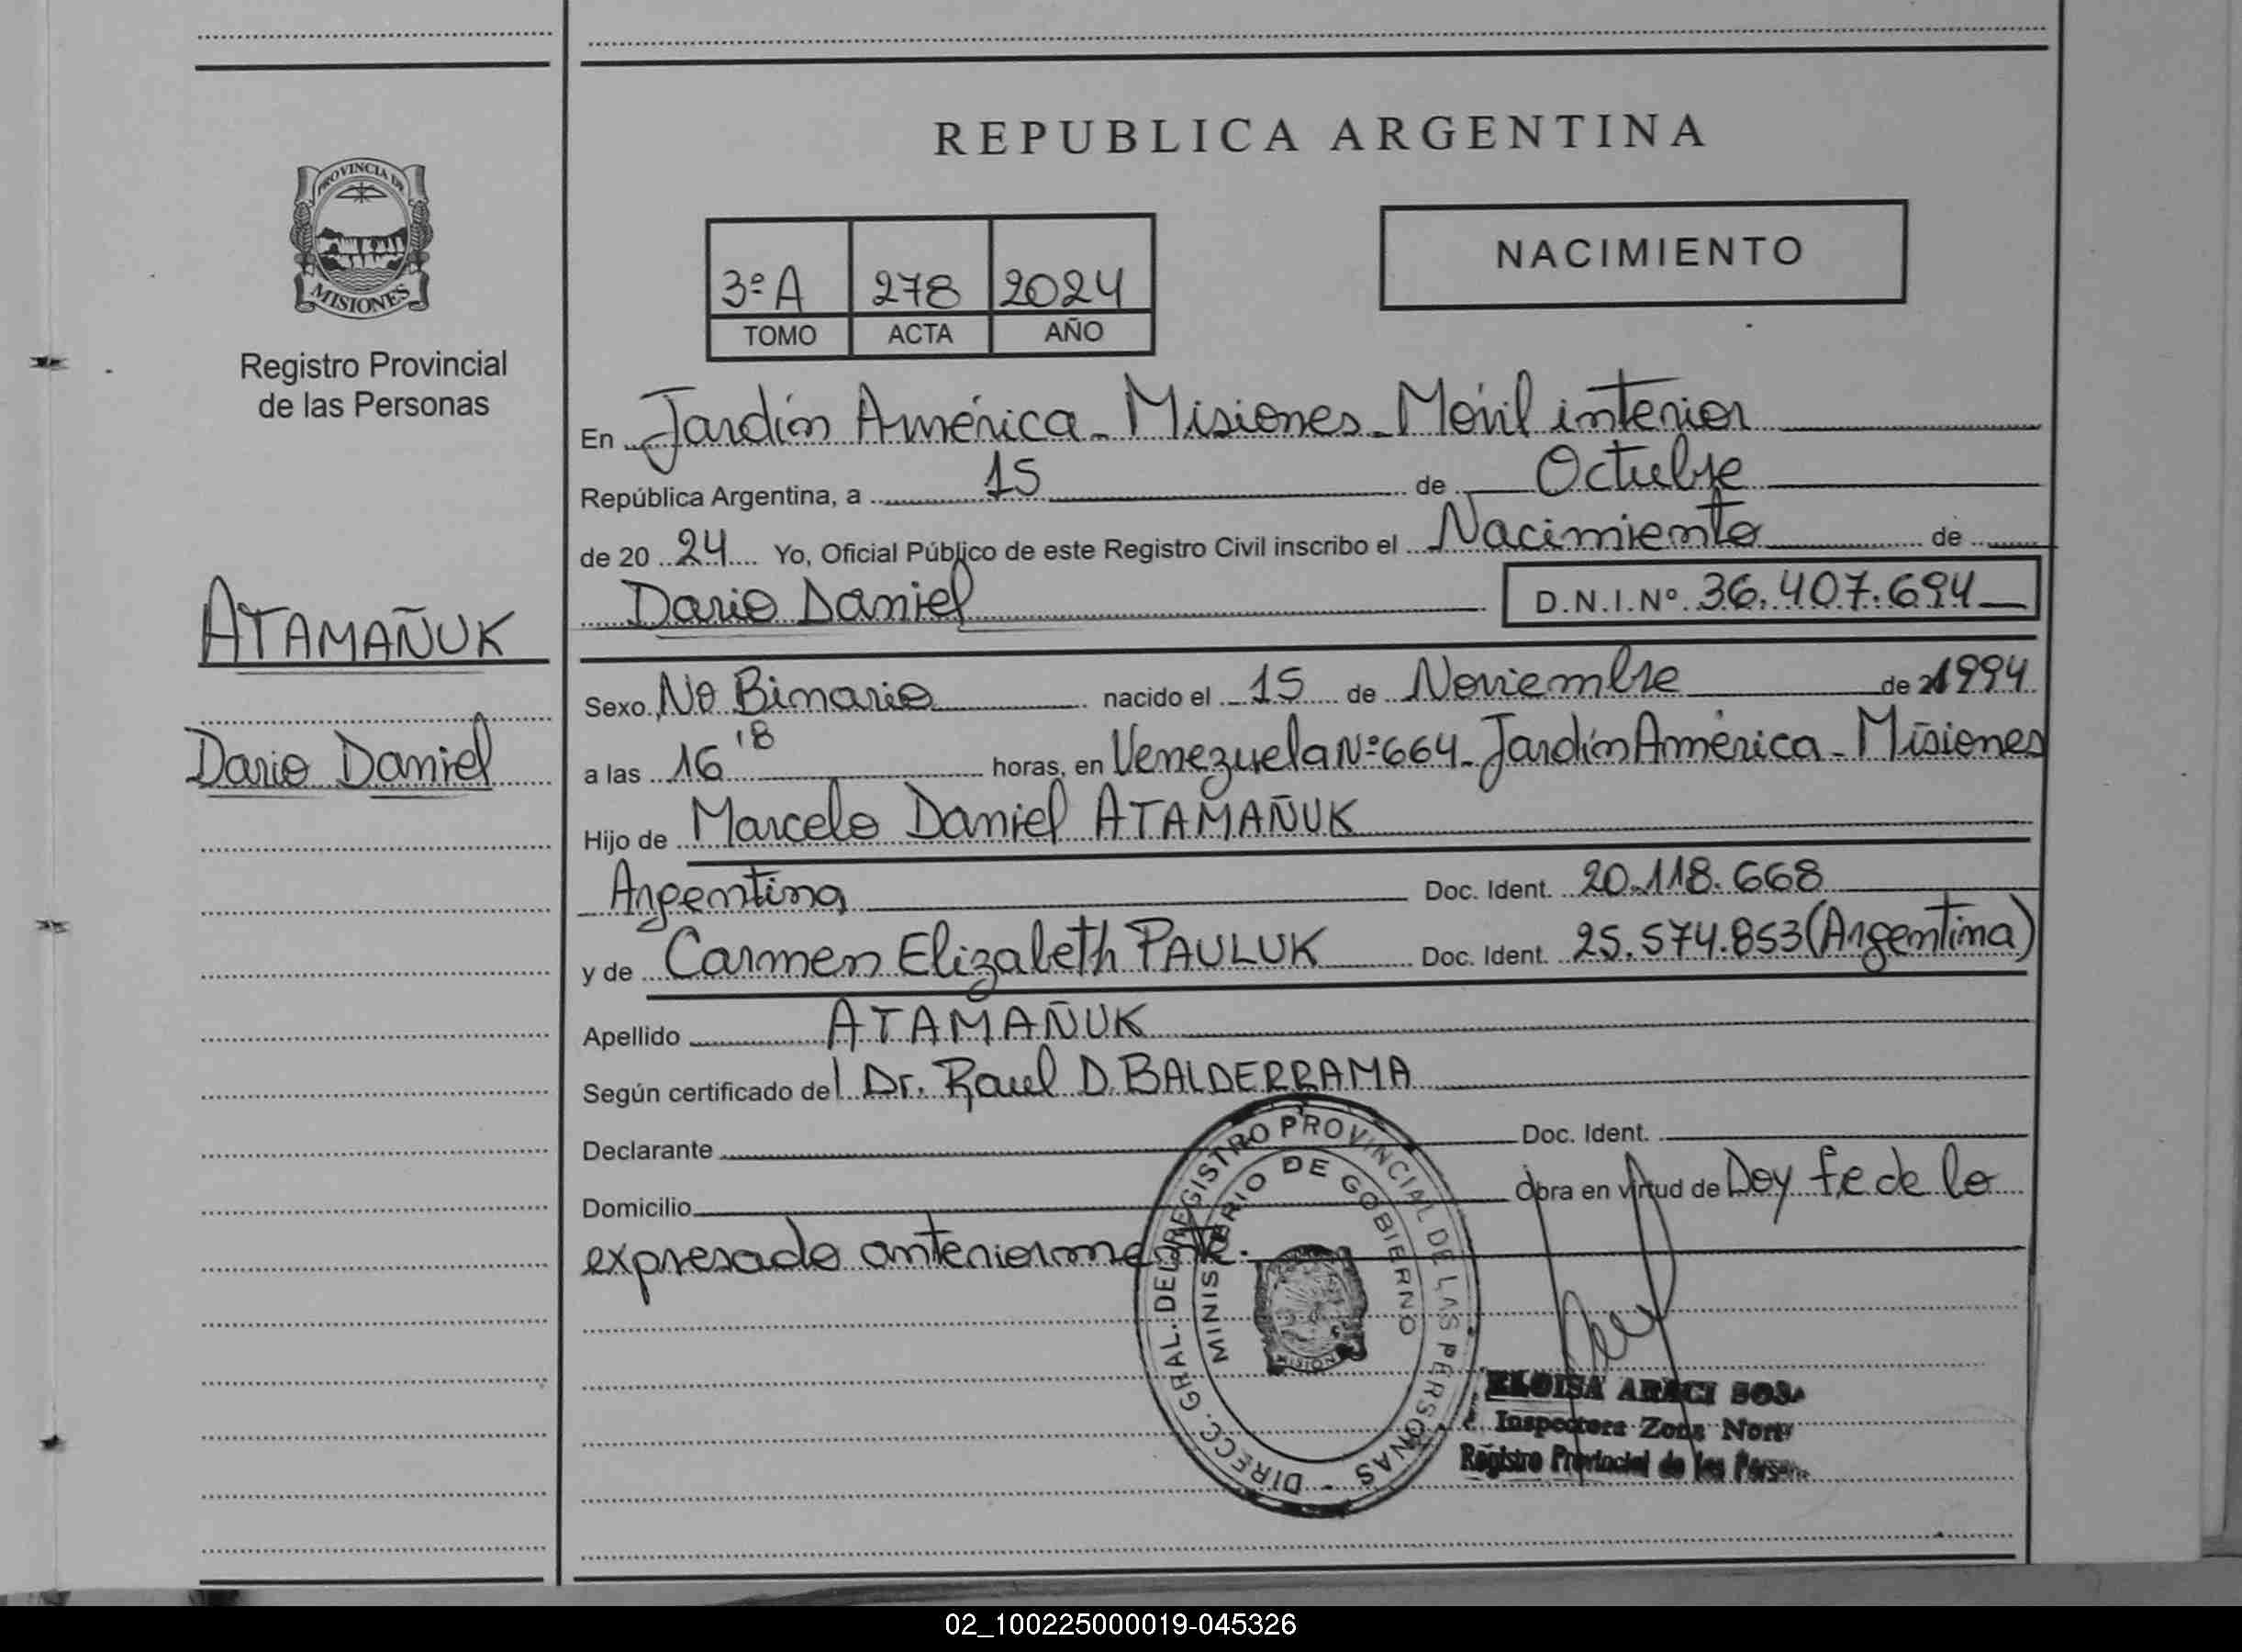 REPUBLICA ARGENTINA
PROVINCIA DE
MISIONES
Registro Provincial
de las Personas
NACIMIENTO
3º A 278 2024
TOMO ACTA AÑO
En Jardín América - Misiones - Móvil interior
República Argentina, a 15 de Octubre
de 20 24 Yo, Oficial Público de este Registro Civil inscribo el Nacimiento de
Dario Daniel D.N.I.Nº 36.407.694
ATAMAÑUK
Dario Daniel
Sexo No Binario nacido el 15 de Noviembre de 1994
a las 16 18 horas, en Venezuela Nº 664 - Jardín América - Misiones
Hijo de Marcelo Daniel ATAMAÑUK
Argentina Doc. Ident. 20.118.668
y de Carmen Elizabeth PAULUK Doc. Ident. 25.574.853 (Argentina)
Apellido ATAMAÑUK
Según certificado del Dr. Raul D. BALDERRAMA
Declarante Doc. Ident.
Domicilio Obra en virtud de Doy fe de lo
expresado anteriormente.
DIRECC. GRAL. DEL REGISTRO PROVINCIAL DE LAS PERSONAS -
MINISTERIO DE GOBIERNO
MISIONES
ELOISA ARACI SOSA
Inspectora Zona Norte
Registro Provincial de las Person
02_100225000019-045326